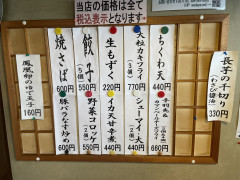 当店の価格は全て
税込表示となります。
長芋の千切り
（わさび醤油）
330円
ちくわ天
440円
大粒カキフライ
770円
生もずく
220円
餃子
（5個）
550円
焼さば
600円
鳳凰卵のゆで玉子
160円
660円
シューマイ
440円
イカ天
440円
野菜コロッケ
（2個）
550円
豚バラなんこつ
600円